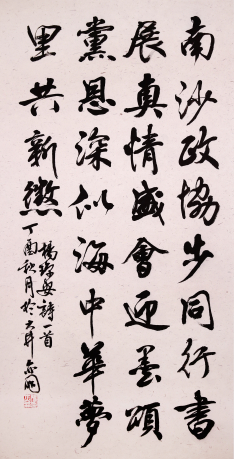 南沙政協步同行書
展真情盛會迎墨頌
黨恩深似海中華夢
里共新懲
詩一首
丁酉秋月於